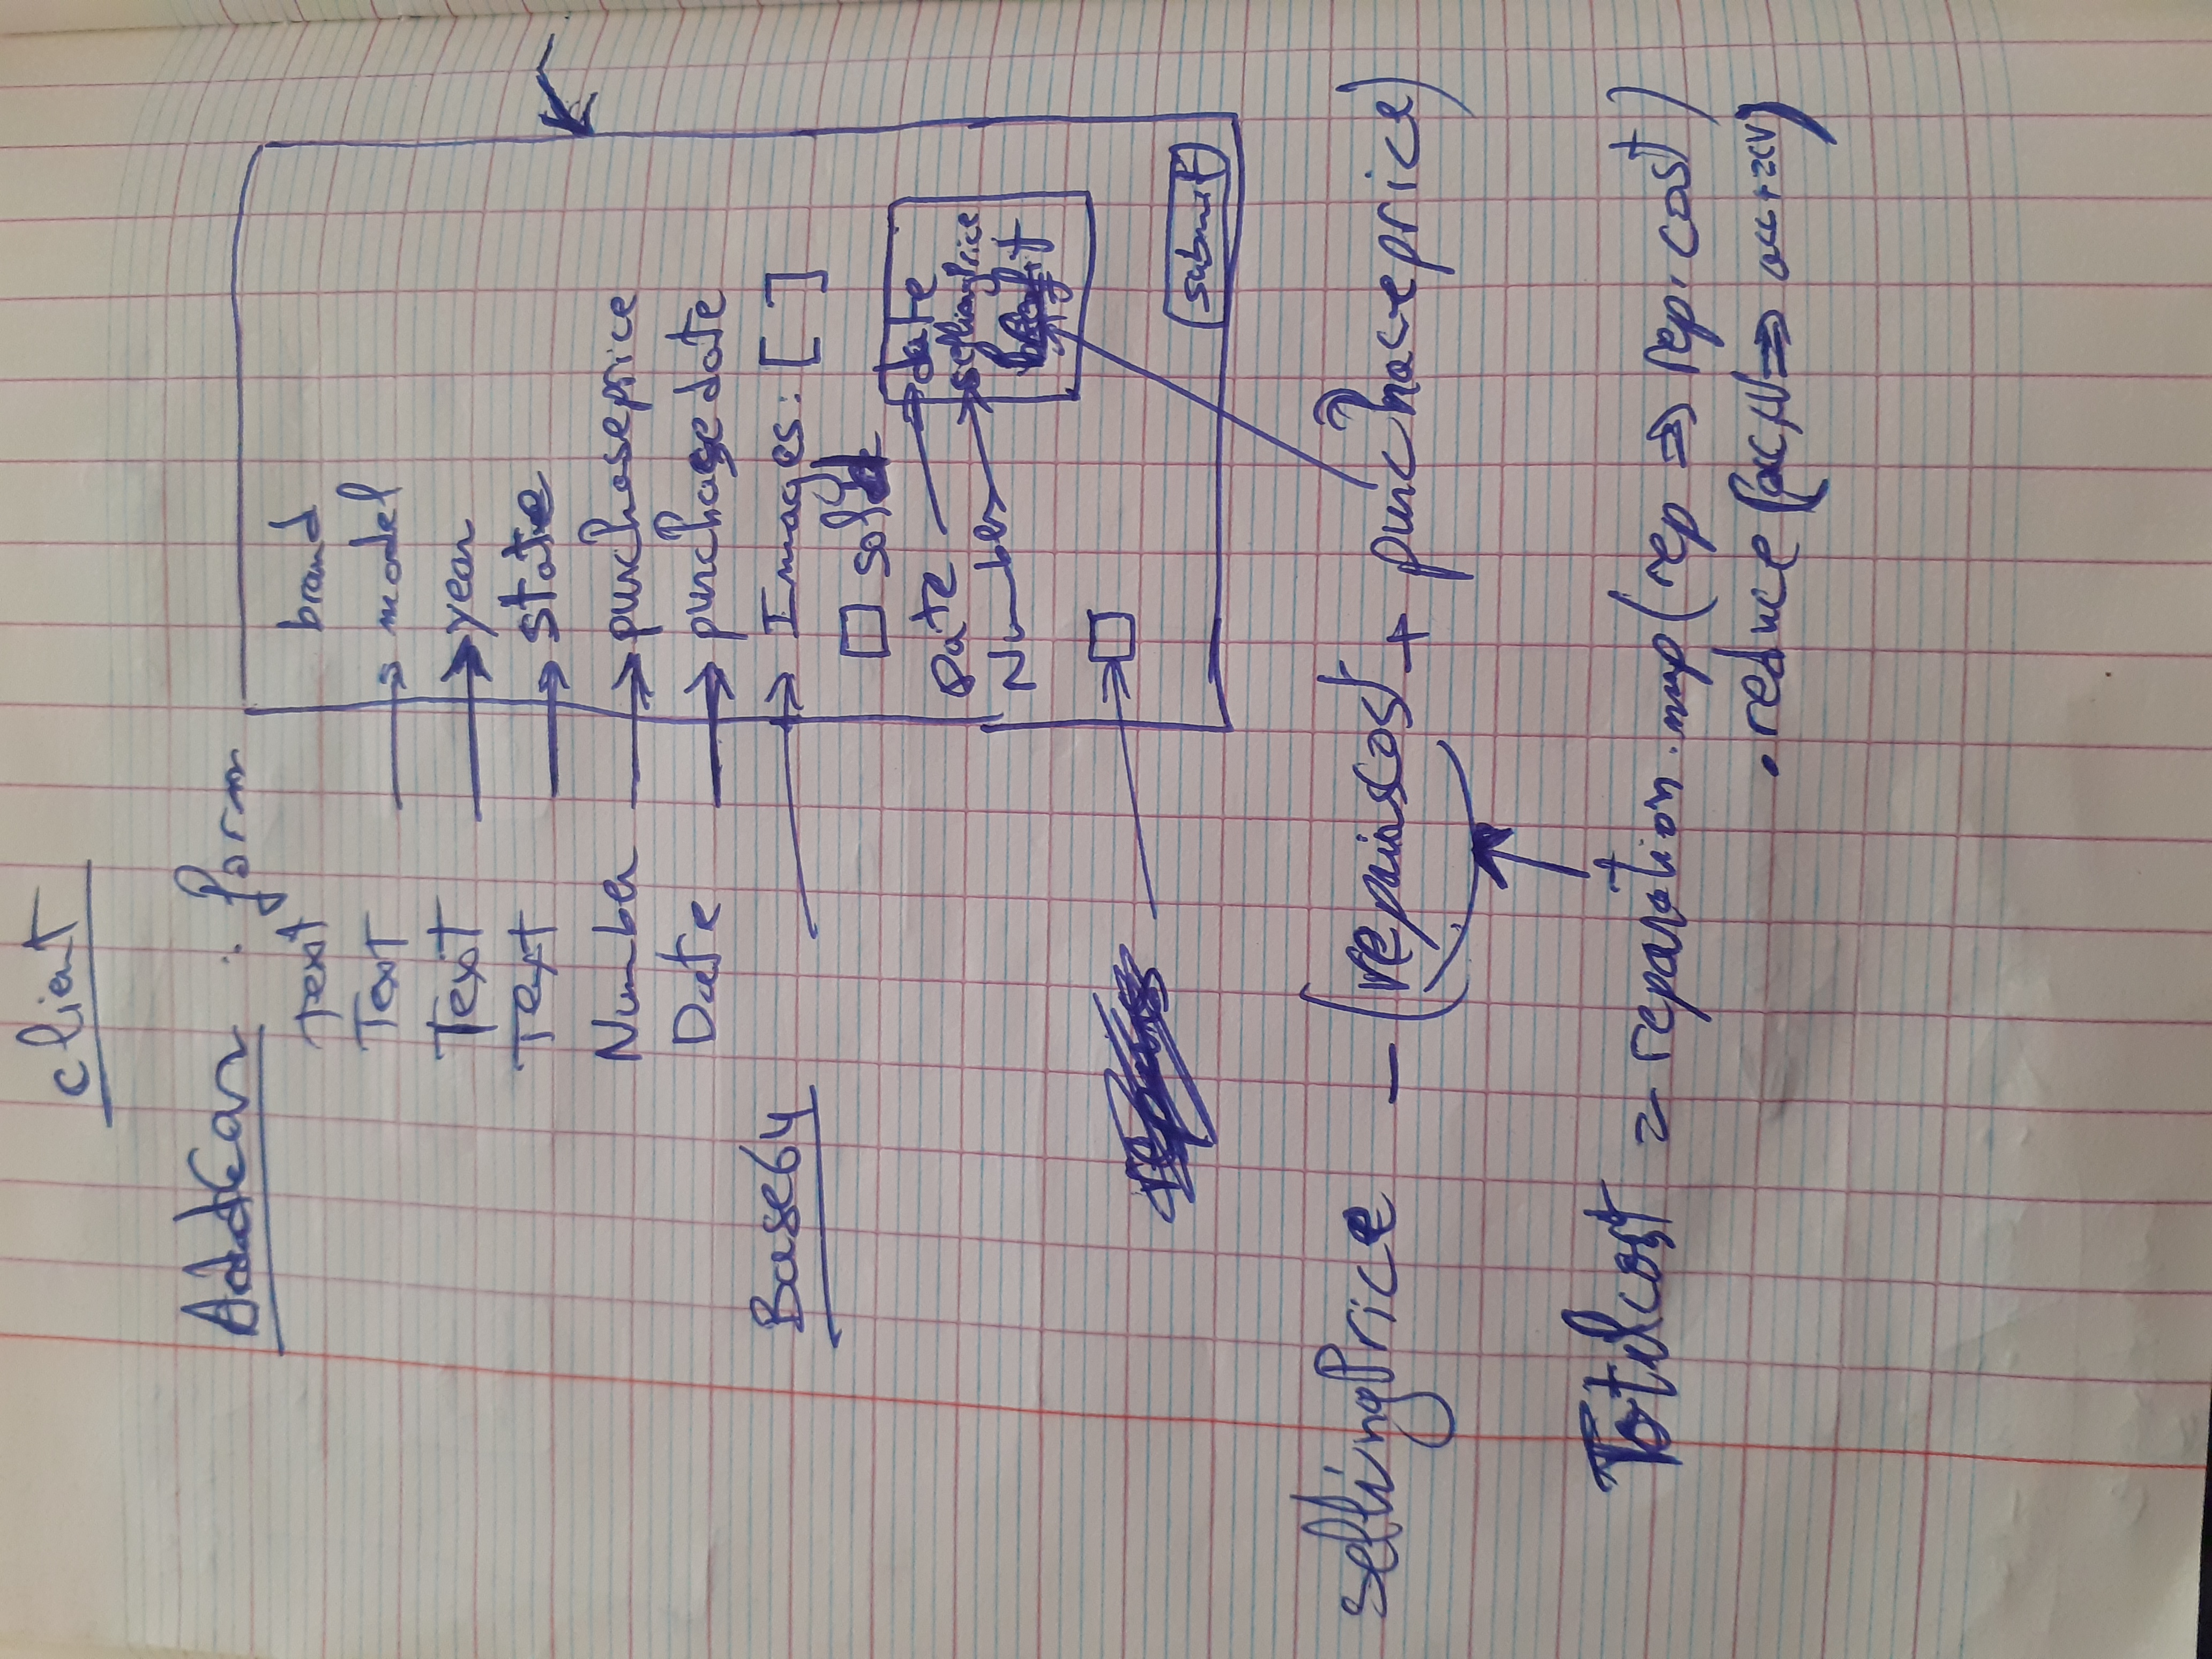 client
AddCar : form
Text brand
Text → model
Text → year
Text → state
Number → purchaseprice
Date → purchasedate
Base64 → Images: [ ]
□ sold
Date → date
Number → sellingPrice
benefit
□
submit
sellingPrice - (repairscost + purchaceprice)
Totalcost = reparation.map(rep => rep.cost)
.reduce(acc,cv => acc+cv)